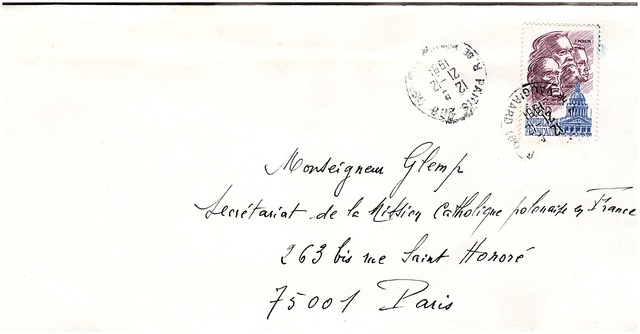 PARIS
12 H
21-12
1981
VAUGIRARD
12 H
21-12
1981
Monseigneur Glemp
Secrétariat de la Mission Catholique polonaise en France
263 bis rue Saint Honoré
75001 Paris